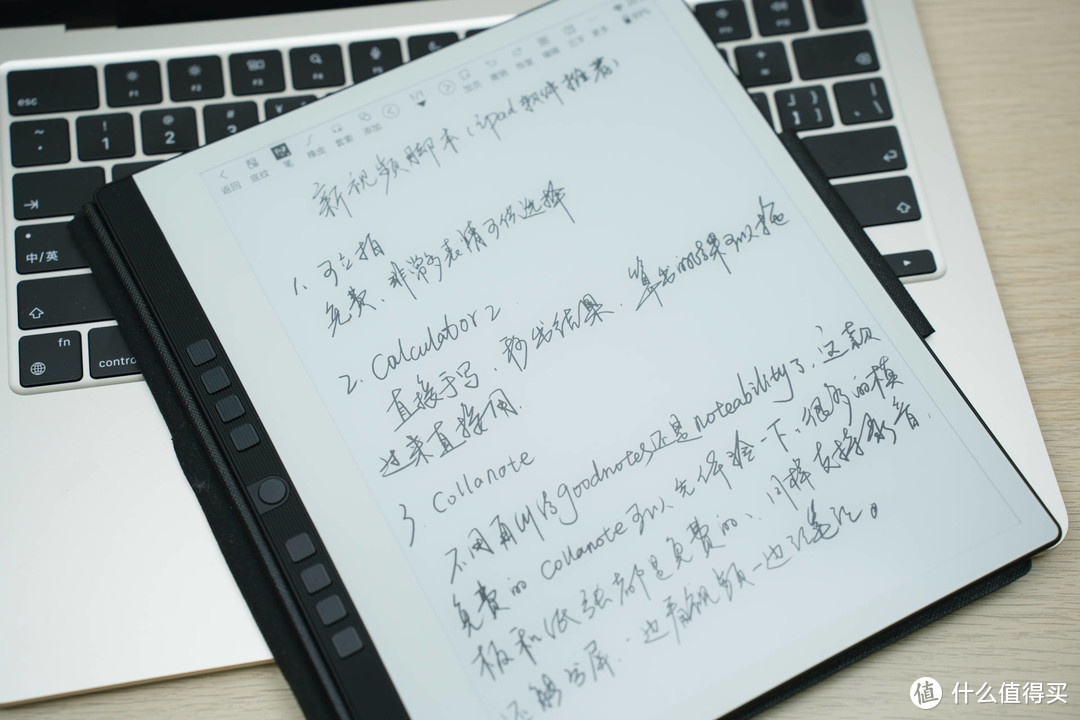 返回 底纹 笔 橡皮 套索 添加 1/1 加页 撤销 恢复 编辑 打字 更多
新视频脚本（ipad软件推荐）
1. 可立拍
免费、非常多表情可供选择
2. Calculator 2
直接手写，秒出结果，算出的结果可以拖
过来直接用.
3. Collanote
不用再纠结goodnotes还是notability了，这款
免费的Collanote可以先体验一下，很多的模
板和纸张都是免费的、同样支持录音，
还能分屏，边看视频一边记笔记。
esc
F1
F2
F3
F4
~
!
1
@
2
中/英
fn
control
+
=
} ]
什么值得买